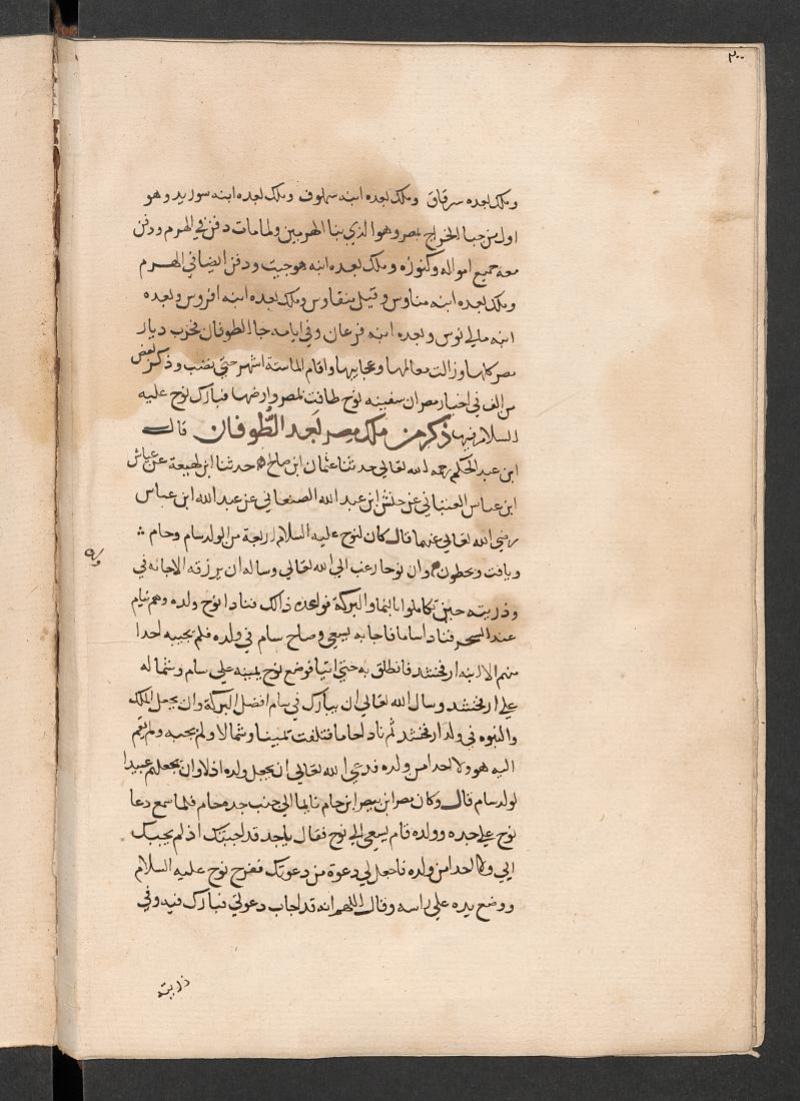 ٢٠٠
وملك بعده سرقاق وملك بعده ابنه سهلوف وملك بعده ابنه سوريد وهو
اول من جبا الخراج بمصر وهو الذي بنا الهرمين ولما مات دفن في الهرم ودفن
معه جميع امواله وكنوزه وملك بعده ابنه هوجيت ودفن ايضا في الهرم
وملك بعده ابنه مناوس وقيل منقاوس وملك بعده ابنه افروس وبعده
ابنه ماليانوس وبعده ابنه فرعان وفي ايامه جا الطوفان فخرب ديار
مصر كلها وزالت معالمها وعجايبها واقام الما ستة اشهر حتى نضب وذكر بعض
من الف في اخبار مصر ان سفينه نوح طافت بمصر وارضها فبارك نوح عليه
السلام فيها ذكر من ملك مصر بعد الطوفان قال
ابن عبد الحكم رحمه الله تعالى حدثنا عثمان ابن صالح حدثنا ابن لهيعة عن عياش
ابن عباس القتباني عن حنش ابن عبد الله الصنعاني عن عبد الله ابن عباس
رضي الله تعالى عنهما قال كان لنوح عليه السلام اربعة من الولد سام وحام
ويافت ويحطون وان نوحا رغب الى الله تعالى وساله ان يرزقه الاجابه في
وذريته حين تكاملوا بالنما والبركة فوعده ذالك فنادا نوح ولده وهم نيام
عند السحر فنادا ساما فاجابه يسعى وصاح سام في ولده فلم يجيبه احدا
منهم الا ابنه ارفخشد فانطلق به حتى اتيا فوضع نوح يمينه على سام وشماله
على ارفخشد وسال الله تعالى ان يبارك في سام افضل البركة وان يجعل الملك
والنبوه في ولد ارفخشد ثم نادا حاما فتلفت يمينا وشمالا ولم يجبه ولم يقم
اليه هو ولا احد من ولده فدعى الله تعالى ان يجعل ولده اذلا وان يجعلهم عبيدا
لولد سام قال وكان مصر ابن بيصر ابن حام نايما الى جنب جده حام فلما سمع دعا
نوح على جده وولده قام يسعى الى نوح فقال يا جد قد اجبتك اذ لم يجبك
ابي ولا احد من ولده فاجعل لي دعوة من دعوتك ففرح نوح عليه السلام
ووضع يده على راسه وقال اللهم انه قد اجاب دعوتي فبارك فيه وفي
ذريته